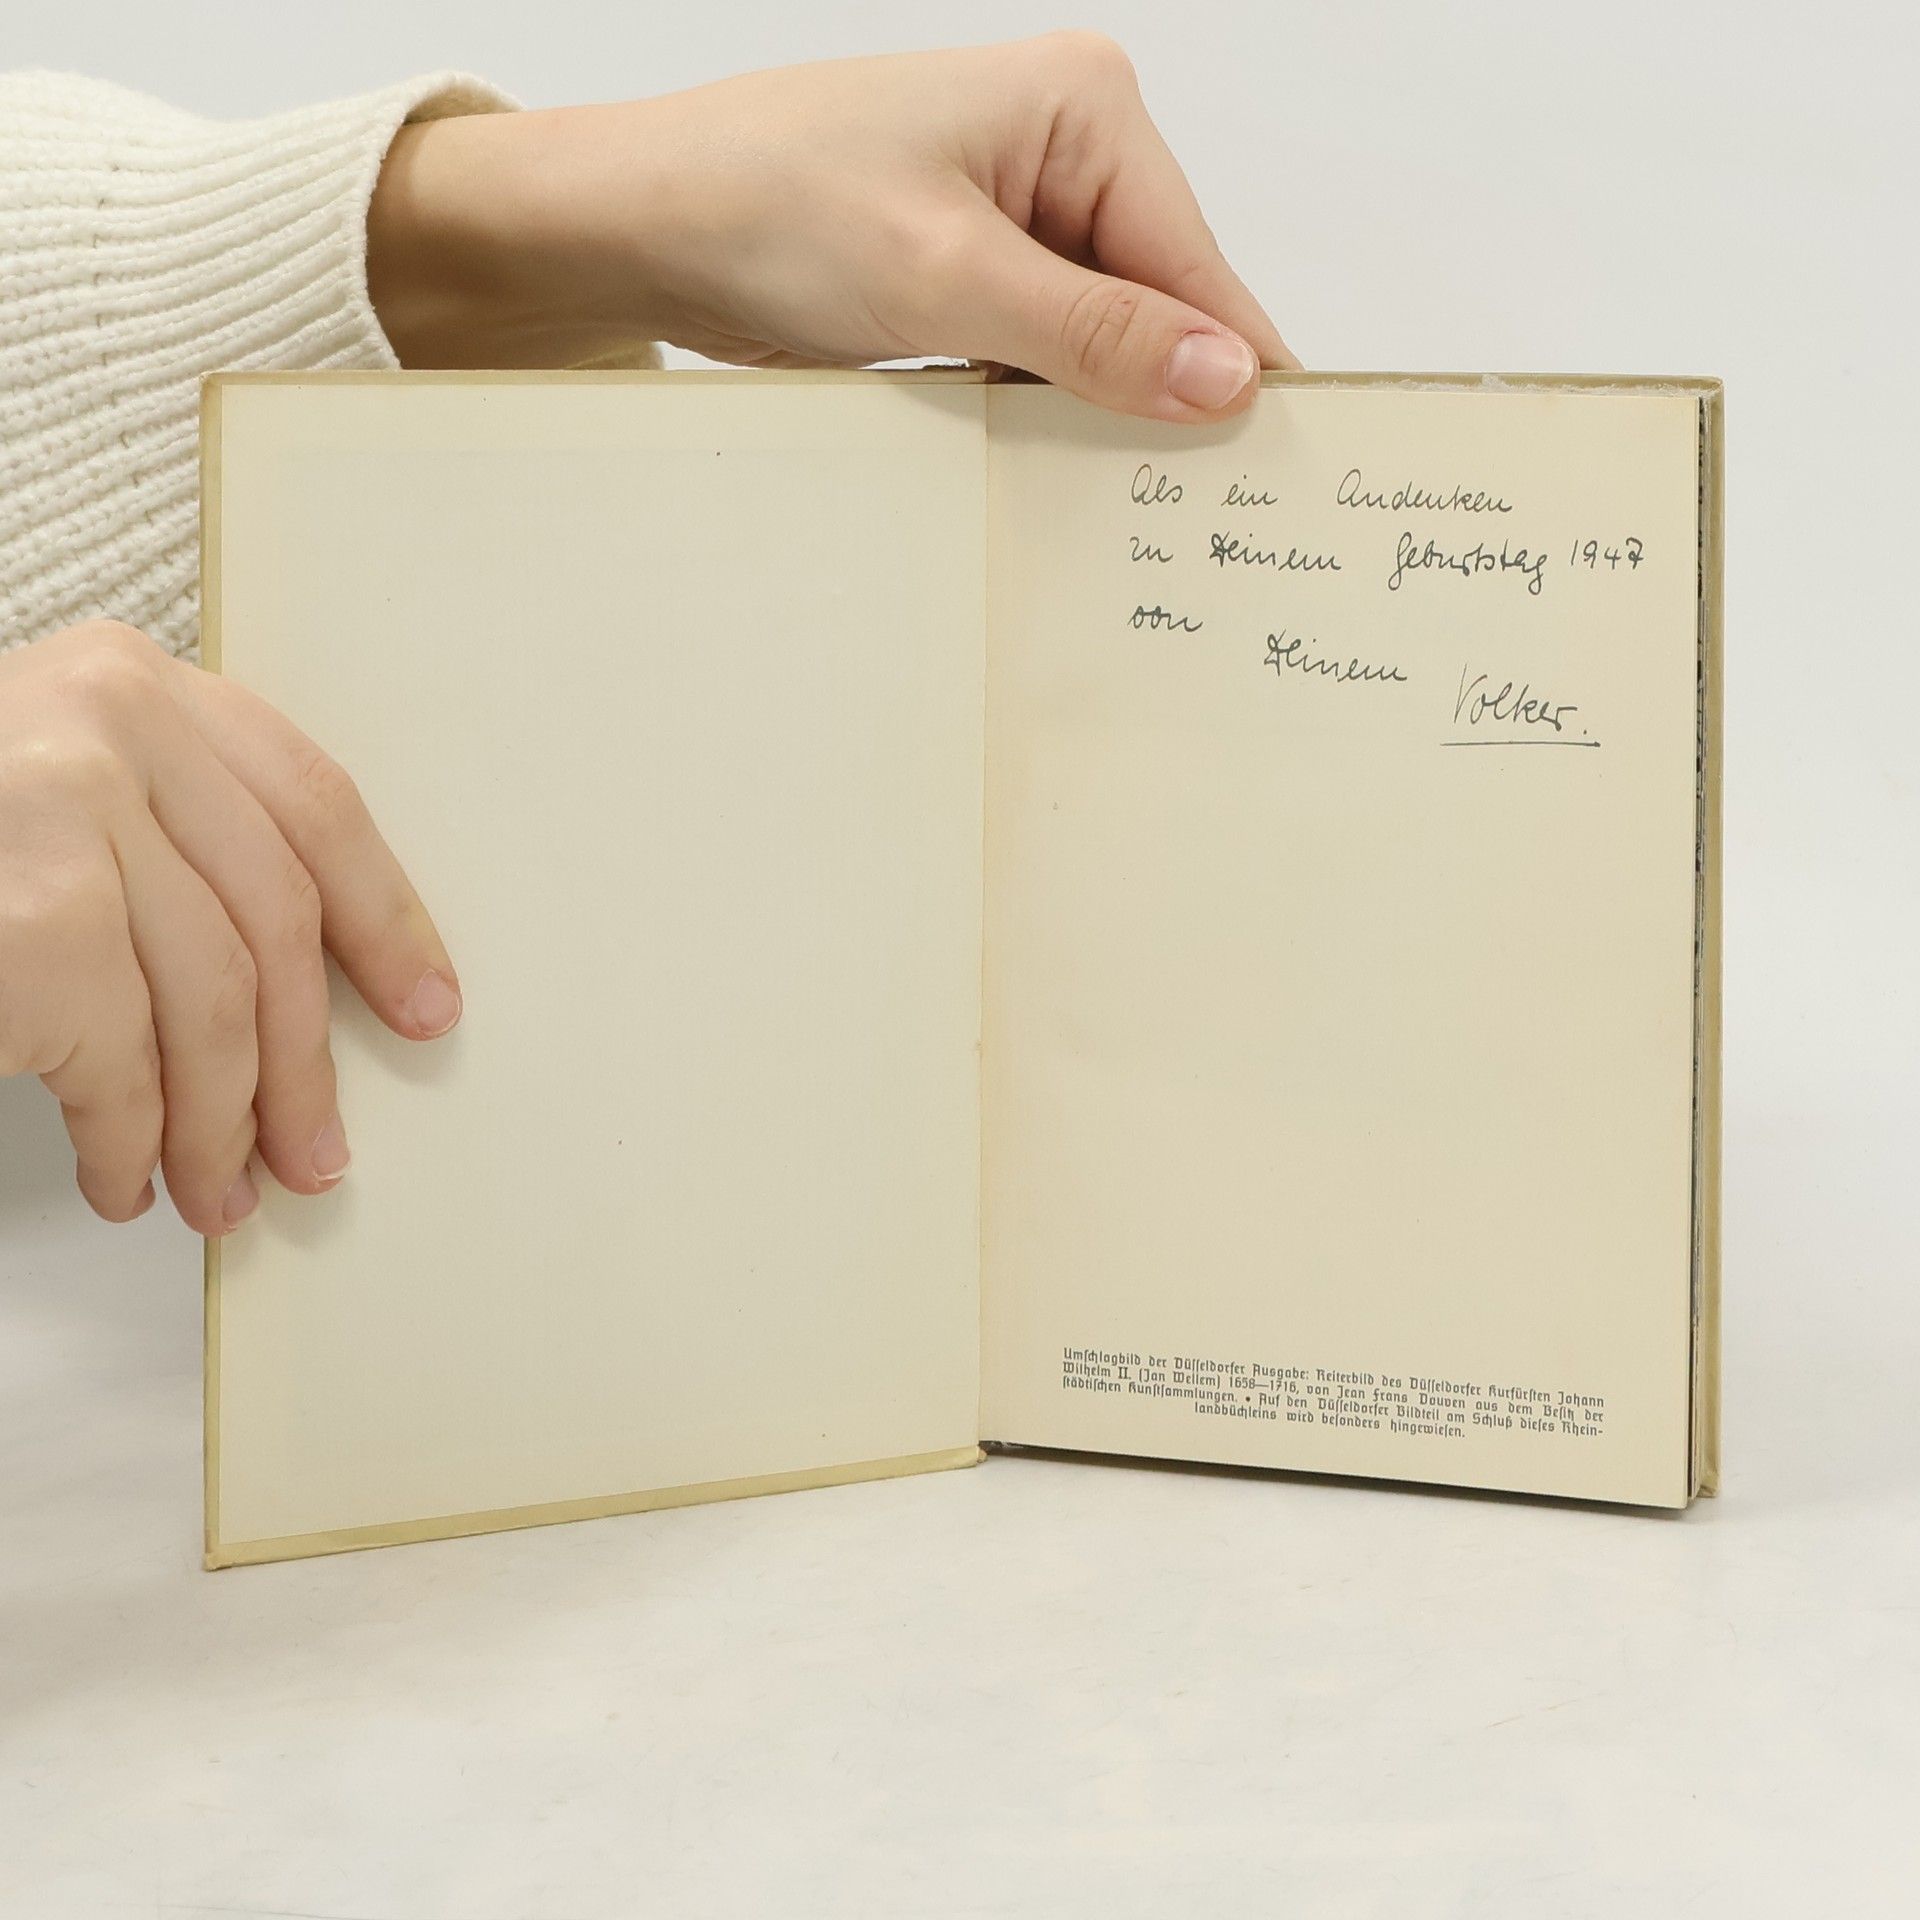 Als ein Andenken
zu Deinem Geburtstag 1947
von
Deinem
Volker.
Umschlagbild der Düsseldorfer Ausgabe: Reiterbild des Düsseldorfer Kurfürsten Johann
Wilhelm II. (Jan Wellem) 1658—1716, von Jean Frans Douven aus dem Besitz der
städtischen Kunstsammlungen. • Auf den Düsseldorfer Bildteil am Schluß dieses Rhein-
landbüchleins wird besonders hingewiesen.